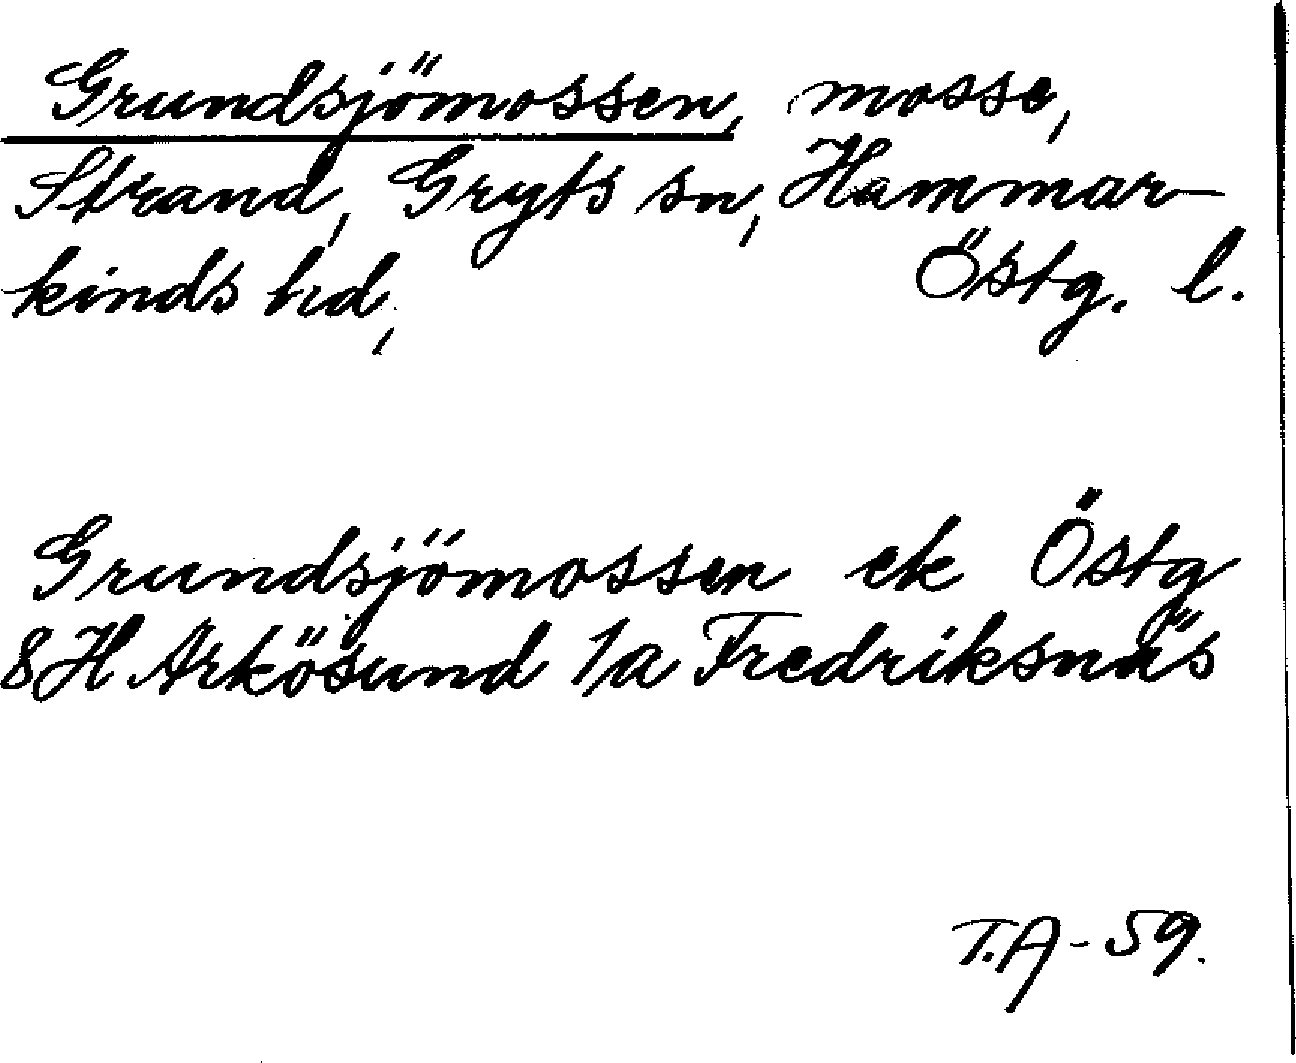 Grundsjömossen, mosse,
Strand, Gryts sn, Hammar-
kinds hd, Östg. l.
Grundsjömossen ek Östg
8H Arkösund 1a Fredriksnäs
T.A-59.